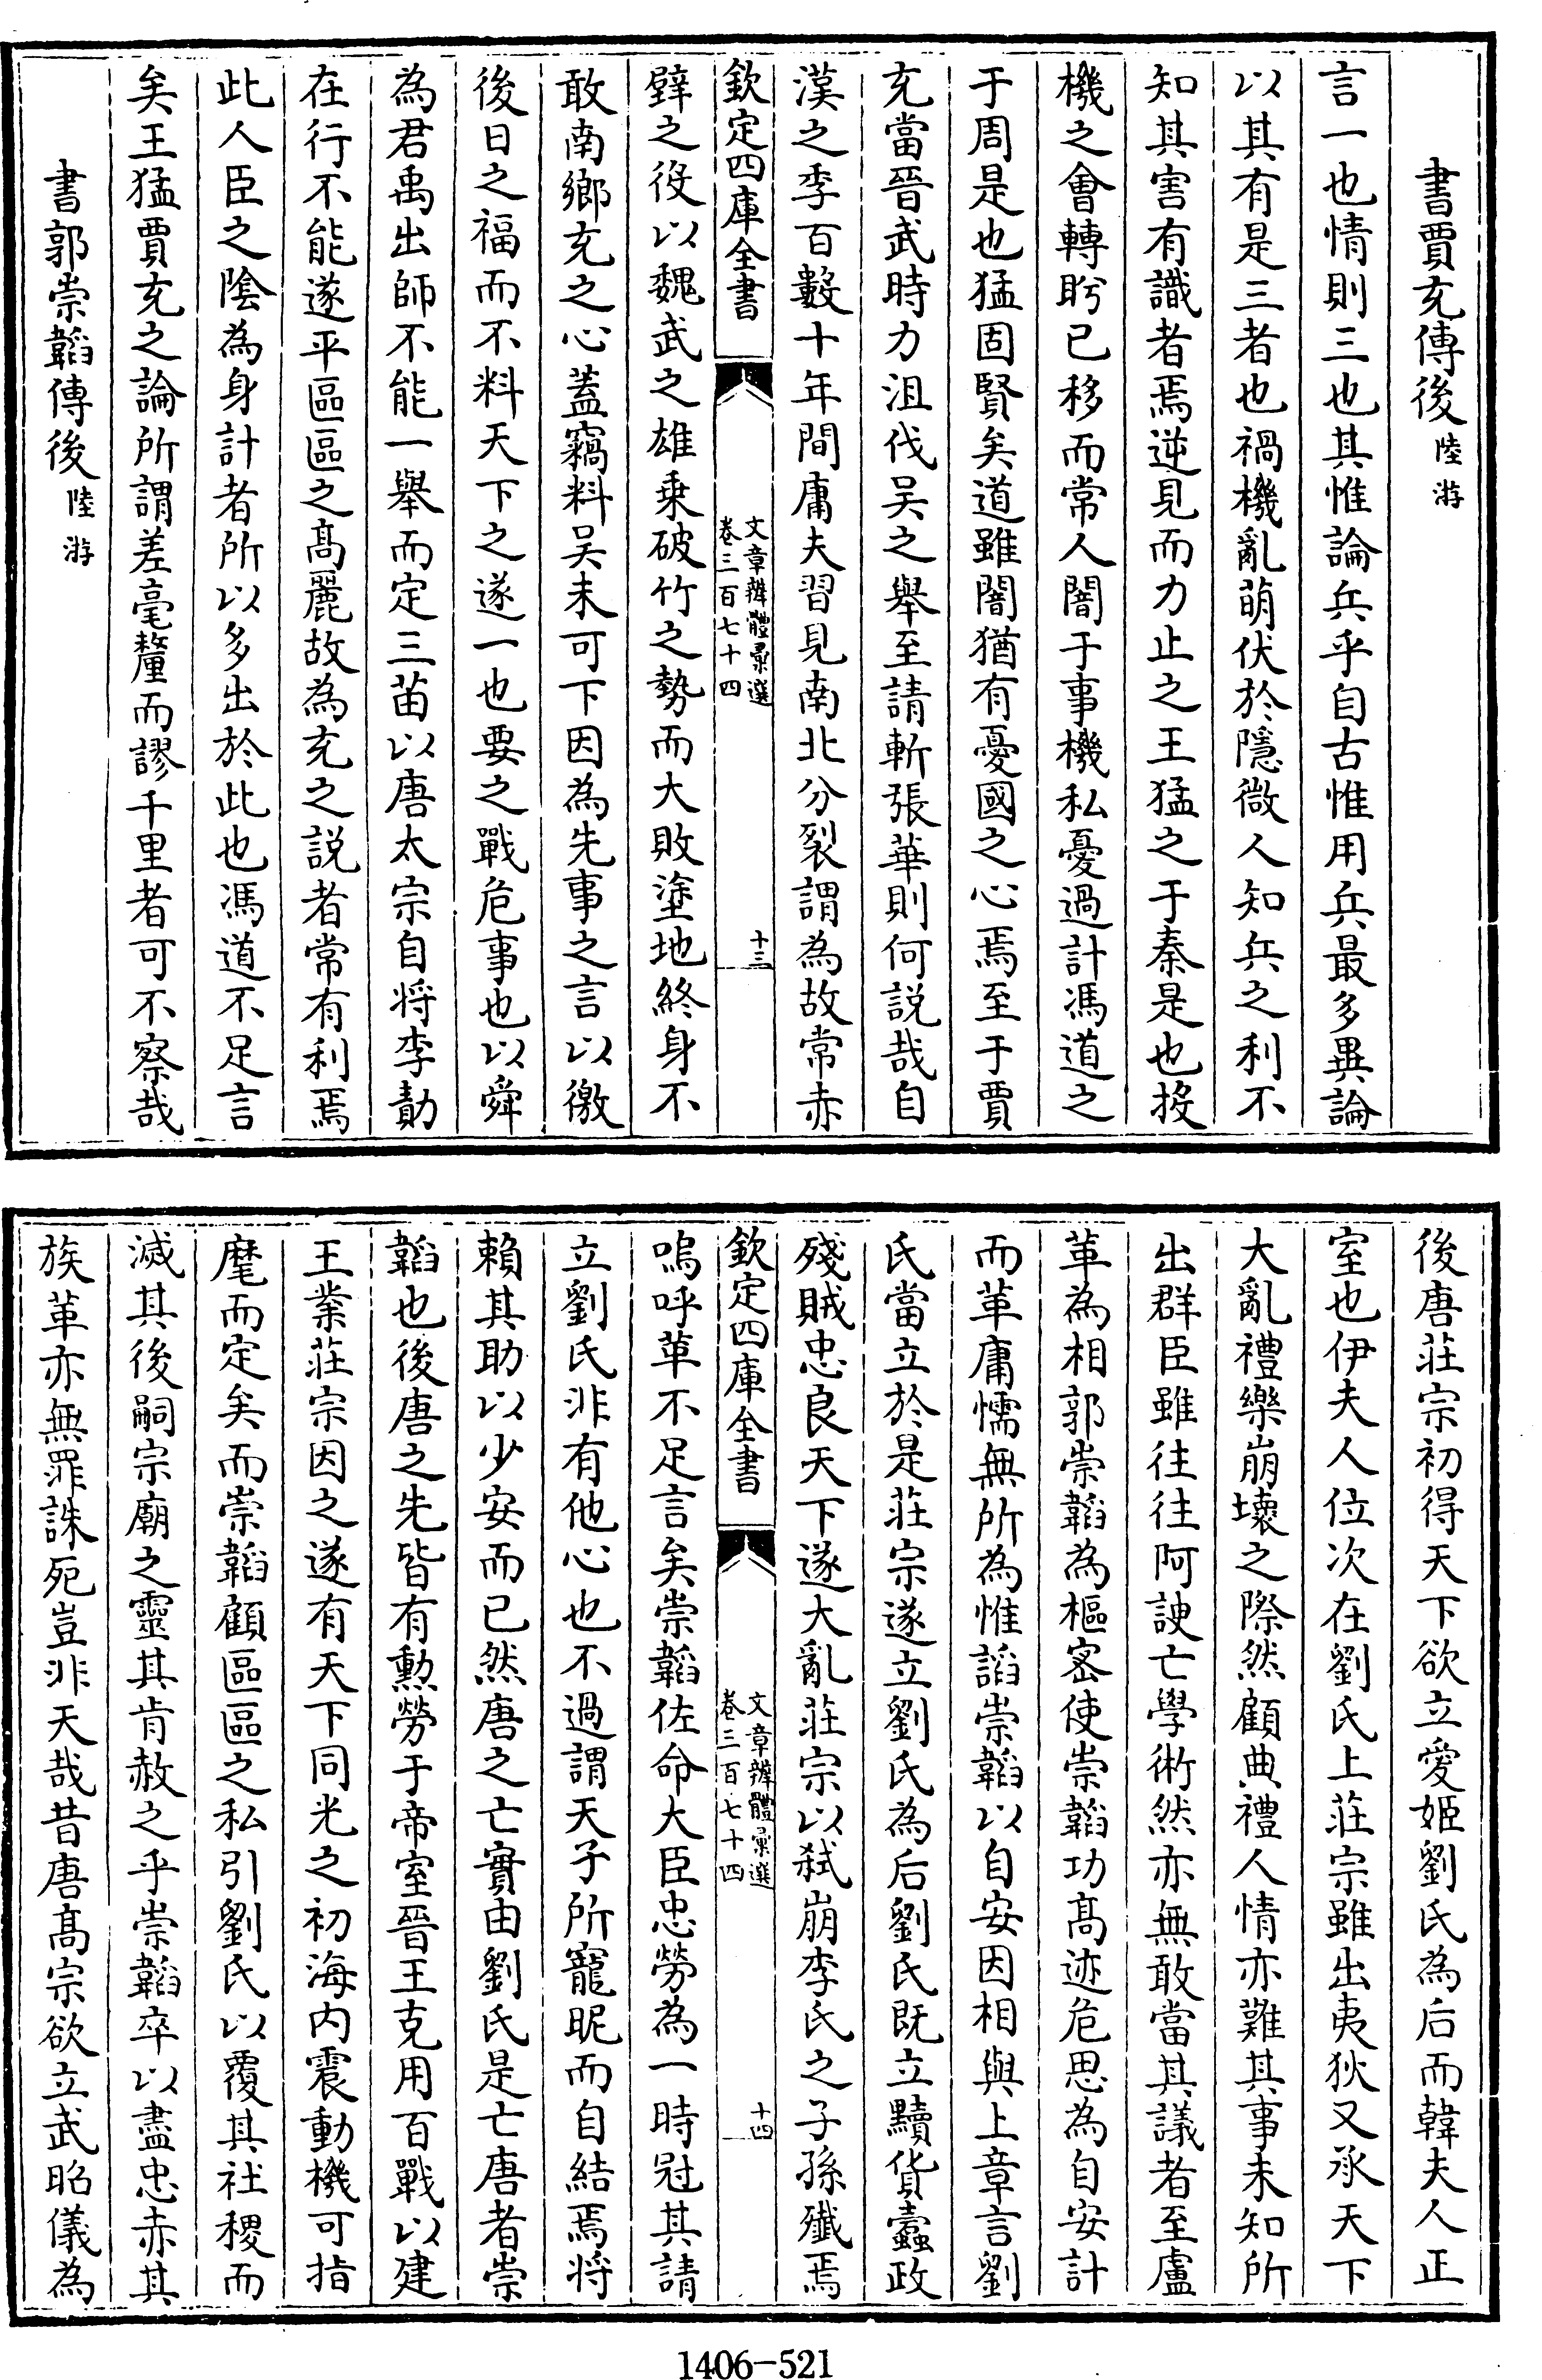 書賈充傳後 陸游
言一也情則三也其惟論兵乎自古惟用兵最多異論
以其有是三者也禍機亂萌伏於隱微人知兵之利不
知其害有識者焉逆見而力止之王猛之于秦是也投
機之會轉盻已移而常人闇于事機私憂過計馮道之
于周是也猛固賢矣道雖闇猶有憂國之心焉至于賈
充當晉武時力沮伐吳之舉至請斬張華則何説哉自
漢之季百數十年間庸夫習見南北分裂謂為故常赤
欽定四庫全書
文章辨體彙選
卷三百七十四
十三
壁之役以魏武之雄乗破竹之勢而大敗塗地終身不
敢南鄉充之心蓋竊料吳未可下因為先事之言以徼
後日之福而不料天下之遂一也要之戰危事也以舜
為君禹出師不能一舉而定三苗以唐太宗自將李勣
在行不能遂平區區之髙麗故為充之説者常有利焉
此人臣之陰為身計者所以多出於此也馮道不足言
矣王猛賈充之論所謂差毫釐而謬千里者可不察哉
書郭崇韜傳後 陸游
後唐莊宗初得天下欲立愛姬劉氏為后而韓夫人正
室也伊夫人位次在劉氏上莊宗雖出夷狄又承天下
大亂禮樂崩壞之際然顧典禮人情亦難其事未知所
出群臣雖往往阿諛亡學術然亦無敢當其議者至盧
革為相郭崇韜為樞密使崇韜功髙迹危思為自安計
而革庸懦無所為惟諂崇韜以自安因相與上章言劉
氏當立於是莊宗遂立劉氏為后劉氏既立黷貨蠹政
殘賊忠良天下遂大亂莊宗以弑崩李氏之子孫殱焉
欽定四庫全書
文章辨體彙選
卷三百七十四
十四
嗚呼革不足言矣崇韜佐命大臣忠勞為一時冠其請
立劉氏非有他心也不過謂天子所寵昵而自結焉將
賴其助以少安而已然唐之亡實由劉氏是亡唐者崇
韜也後唐之先皆有勲勞于帝室晉王克用百戰以建
王業莊宗因之遂有天下同光之初海内震動機可指
麾而定矣而崇韜顧區區之私引劉氏以覆其社稷而
滅其後嗣宗廟之靈其肯赦之乎崇韜卒以盡忠赤其
族革亦無罪誅死豈非天哉昔唐髙宗欲立武昭儀為
1406-521